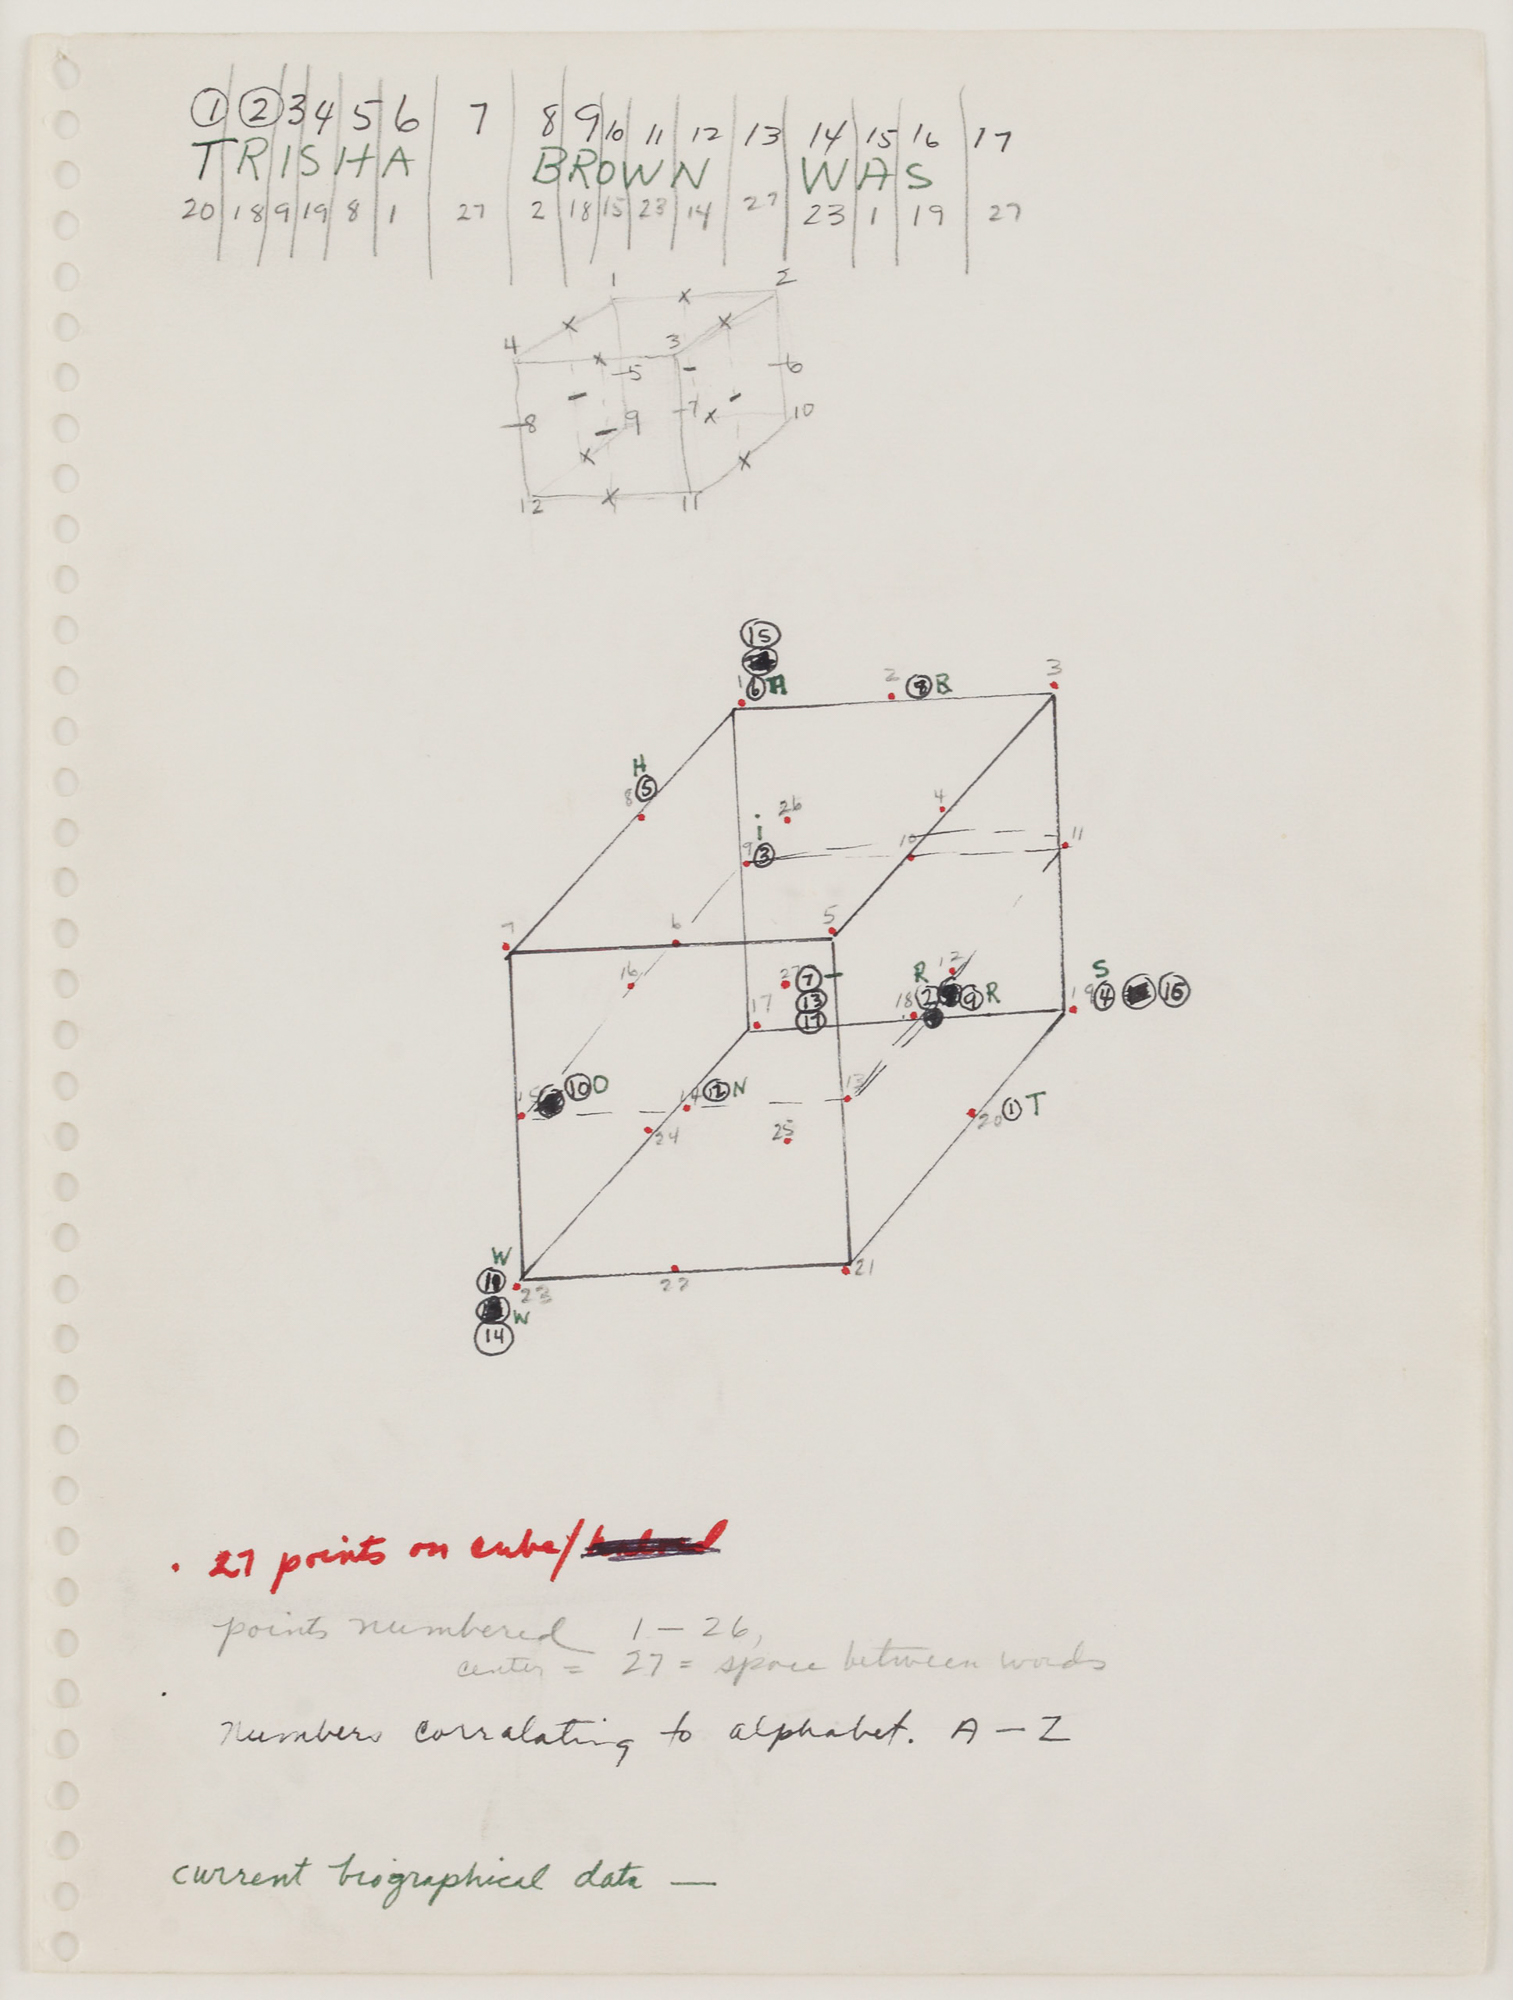 1 2 3 4 5 6 7 8 9 10 11 12 13 14 15 16 17
TRISHA BROWN WAS
20 18 9 19 8 1 27 2 18 15 23 14 27 23 1 19 27
1 2
4 3
5 6
8 9 7 10
12 11
15
1 6 A 2 8 B 3
H
8 5
i 26 4
9 3 10 11
7 6 5
16 27 7 R 12 S
17 13 18 2 9 R 19 4 16
17
15 10 O 14 12 N 13 20 1 T
24 25
W
11 23 22 21
W
14
. 27 points on cube/
points numbered 1 – 26,
center = 27 = space between words
Numbers corralating to alphabet. A – Z
current biographical data —